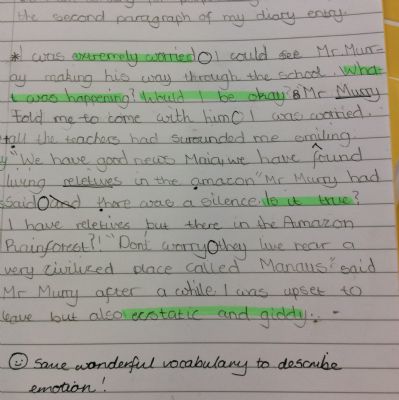 the second paragraph of my diary entry.
* I was extremely worried I could see Mr Murr-
ay making his way through the school. Wha
t was happening? Would I be okay? Mr Murry
told me to come with him I was worried.
all the teachers had surounded me smiling.
"We have good news Maia, we have found
living reletives in the amazon" Mr Murry had
said and there was a silence. Is it true?
I have reletives but there in the Amazon
Rainforest?! "Dont worry they live near a
very civilized place called Manaus" said
Mr Murry after a while. I was upset to
leave but also ecstatic and giddy.
some wonderful vocabulary to describe
emotion!